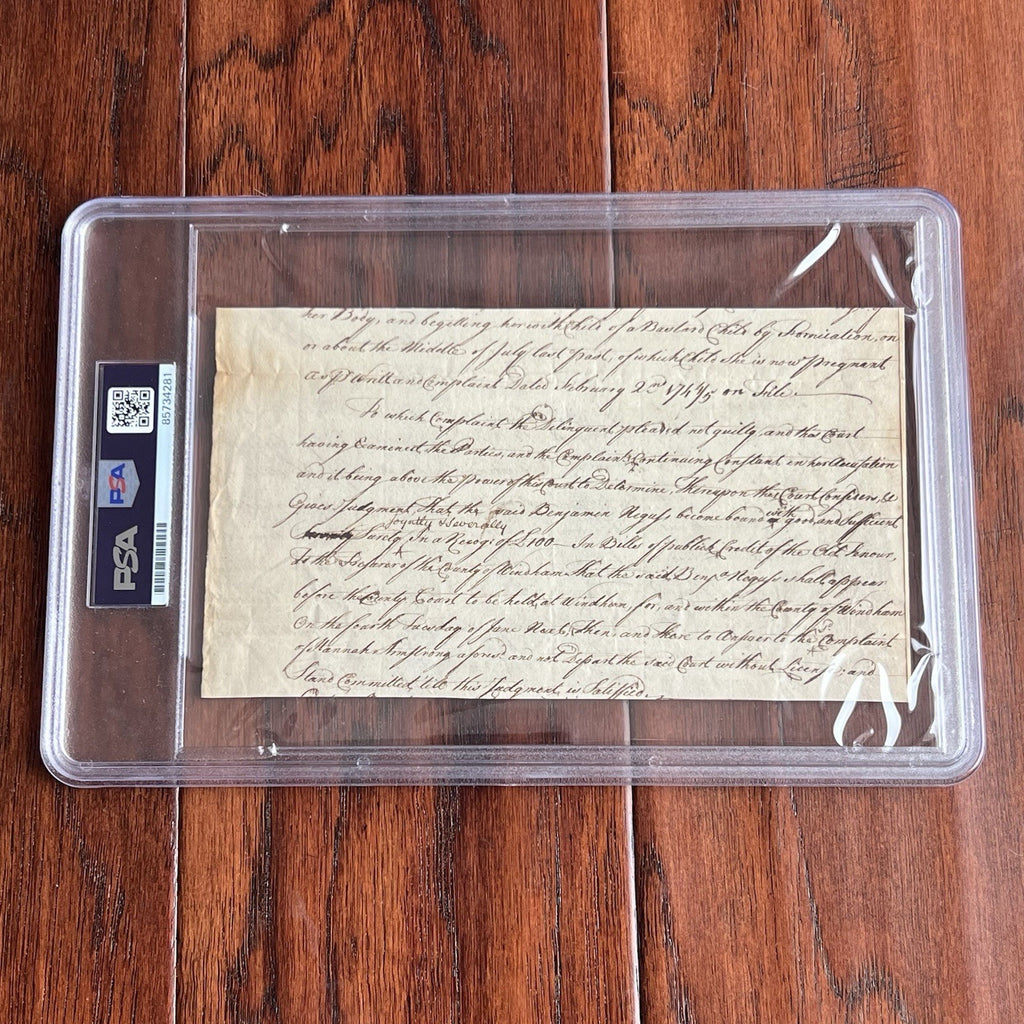 her Body, and begetting her with Child of a Bastard Child by Fornication, on
or about the Middle of July last past, of which Child She is now Pregnant
as pr Writt and Complaint Dated February 2nd 1744/5 on File.
To which Complaint the Delinquent pleaded not guilty, and this Court
having Examined the Parties, and the Complainant Continuing Constant in her Accusation
and it being above the Power of this Court to Determine, Thereupon this Court Considers, &
Gives Judgment, That the said Benjamin Neguss become bound with good, and Sufficient
Joyntly & Severally
Surety In a Recogn: of £100 – In Bills of publick Credit of the Old Tenour,
to the Treasurer of the County of Windham That the said Benja Neguss shall appear
before the County Court to be held, at Windham, for, and within the County of Windham
On the fourth Tuesday of June Next, Then, and there to Answer to the Complaint
of Hannah Armstrong aforesd. and not Depart the said Court without License; and
Stand Committed, till this Judgment is Satisfied.
85734281
PSA
PSA